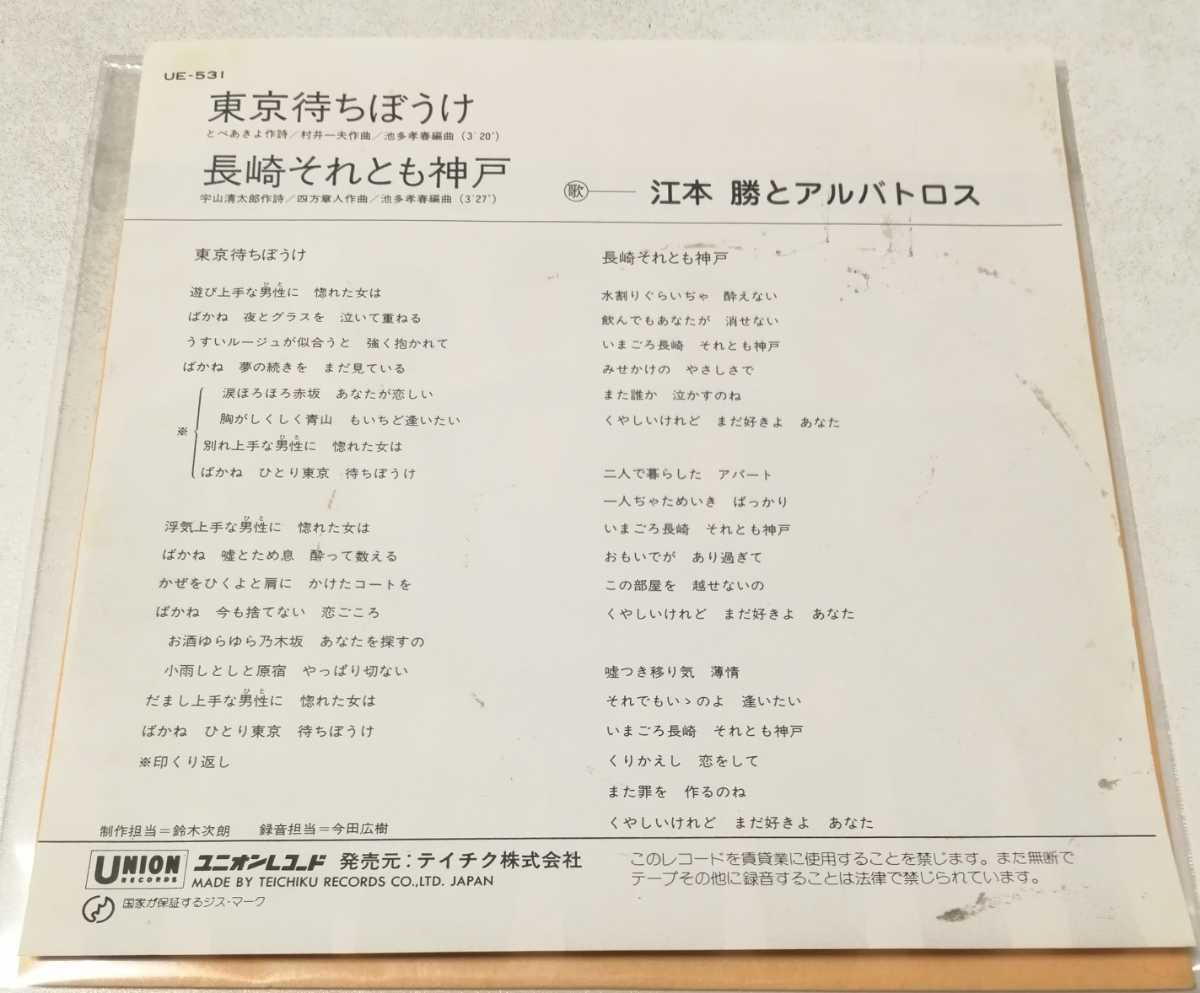 UE-531
東京待ちぼうけ
とべあきよ作詩/村井一夫作曲/池多孝春編曲(3'20")
長崎それとも神戸
宇山清太郎作詩/四方章人作曲/池多孝春編曲(3'27")
歌 江本 勝とアルバトロス
東京待ちぼうけ
遊び上手な男性に 惚れた女は
ひと
ばかね 夜とグラスを 泣いて重ねる
うすいルージュが似合うと 強く抱かれて
ばかね 夢の続きを まだ見ている
※
涙ほろほろ赤坂 あなたが恋しい
胸がしくしく青山 もいちど逢いたい
別れ上手な男性に 惚れた女は
ひと
ばかね ひとり東京 待ちぼうけ
浮気上手な男性に 惚れた女は
ひと
ばかね 嘘とため息 酔って数える
かぜをひくよと肩に かけたコートを
ばかね 今も捨てない 恋ごころ
お酒ゆらゆら乃木坂 あなたを探すの
小雨しとしと原宿 やっぱり切ない
だまし上手な男性に 惚れた女は
ひと
ばかね ひとり東京 待ちぼうけ
※印くり返し
長崎それとも神戸
水割りぐらいぢゃ 酔えない
飲んでもあなたが 消せない
いまごろ長崎 それとも神戸
みせかけの やさしさで
また誰か 泣かすのね
くやしいけれど まだ好きよ あなた
二人で暮らした アパート
一人ぢゃためいき ばっかり
いまごろ長崎 それとも神戸
おもいでが あり過ぎて
この部屋を 越せないの
くやしいけれど まだ好きよ あなた
嘘つき移り気 薄情
それでもいゝのよ 逢いたい
いまごろ長崎 それとも神戸
くりかえし 恋をして
また罪を 作るのね
くやしいけれど まだ好きよ あなた
制作担当=鈴木次朗 録音担当=今田広樹
UNION RECORDS
ユニオンレコード 発売元:テイチク株式会社
MADE BY TEICHIKU RECORDS CO.,LTD. JAPAN
国家が保証するジス・マーク
このレコードを賃貸業に使用することを禁じます。また無断で
テープその他に録音することは法律で禁じられています。